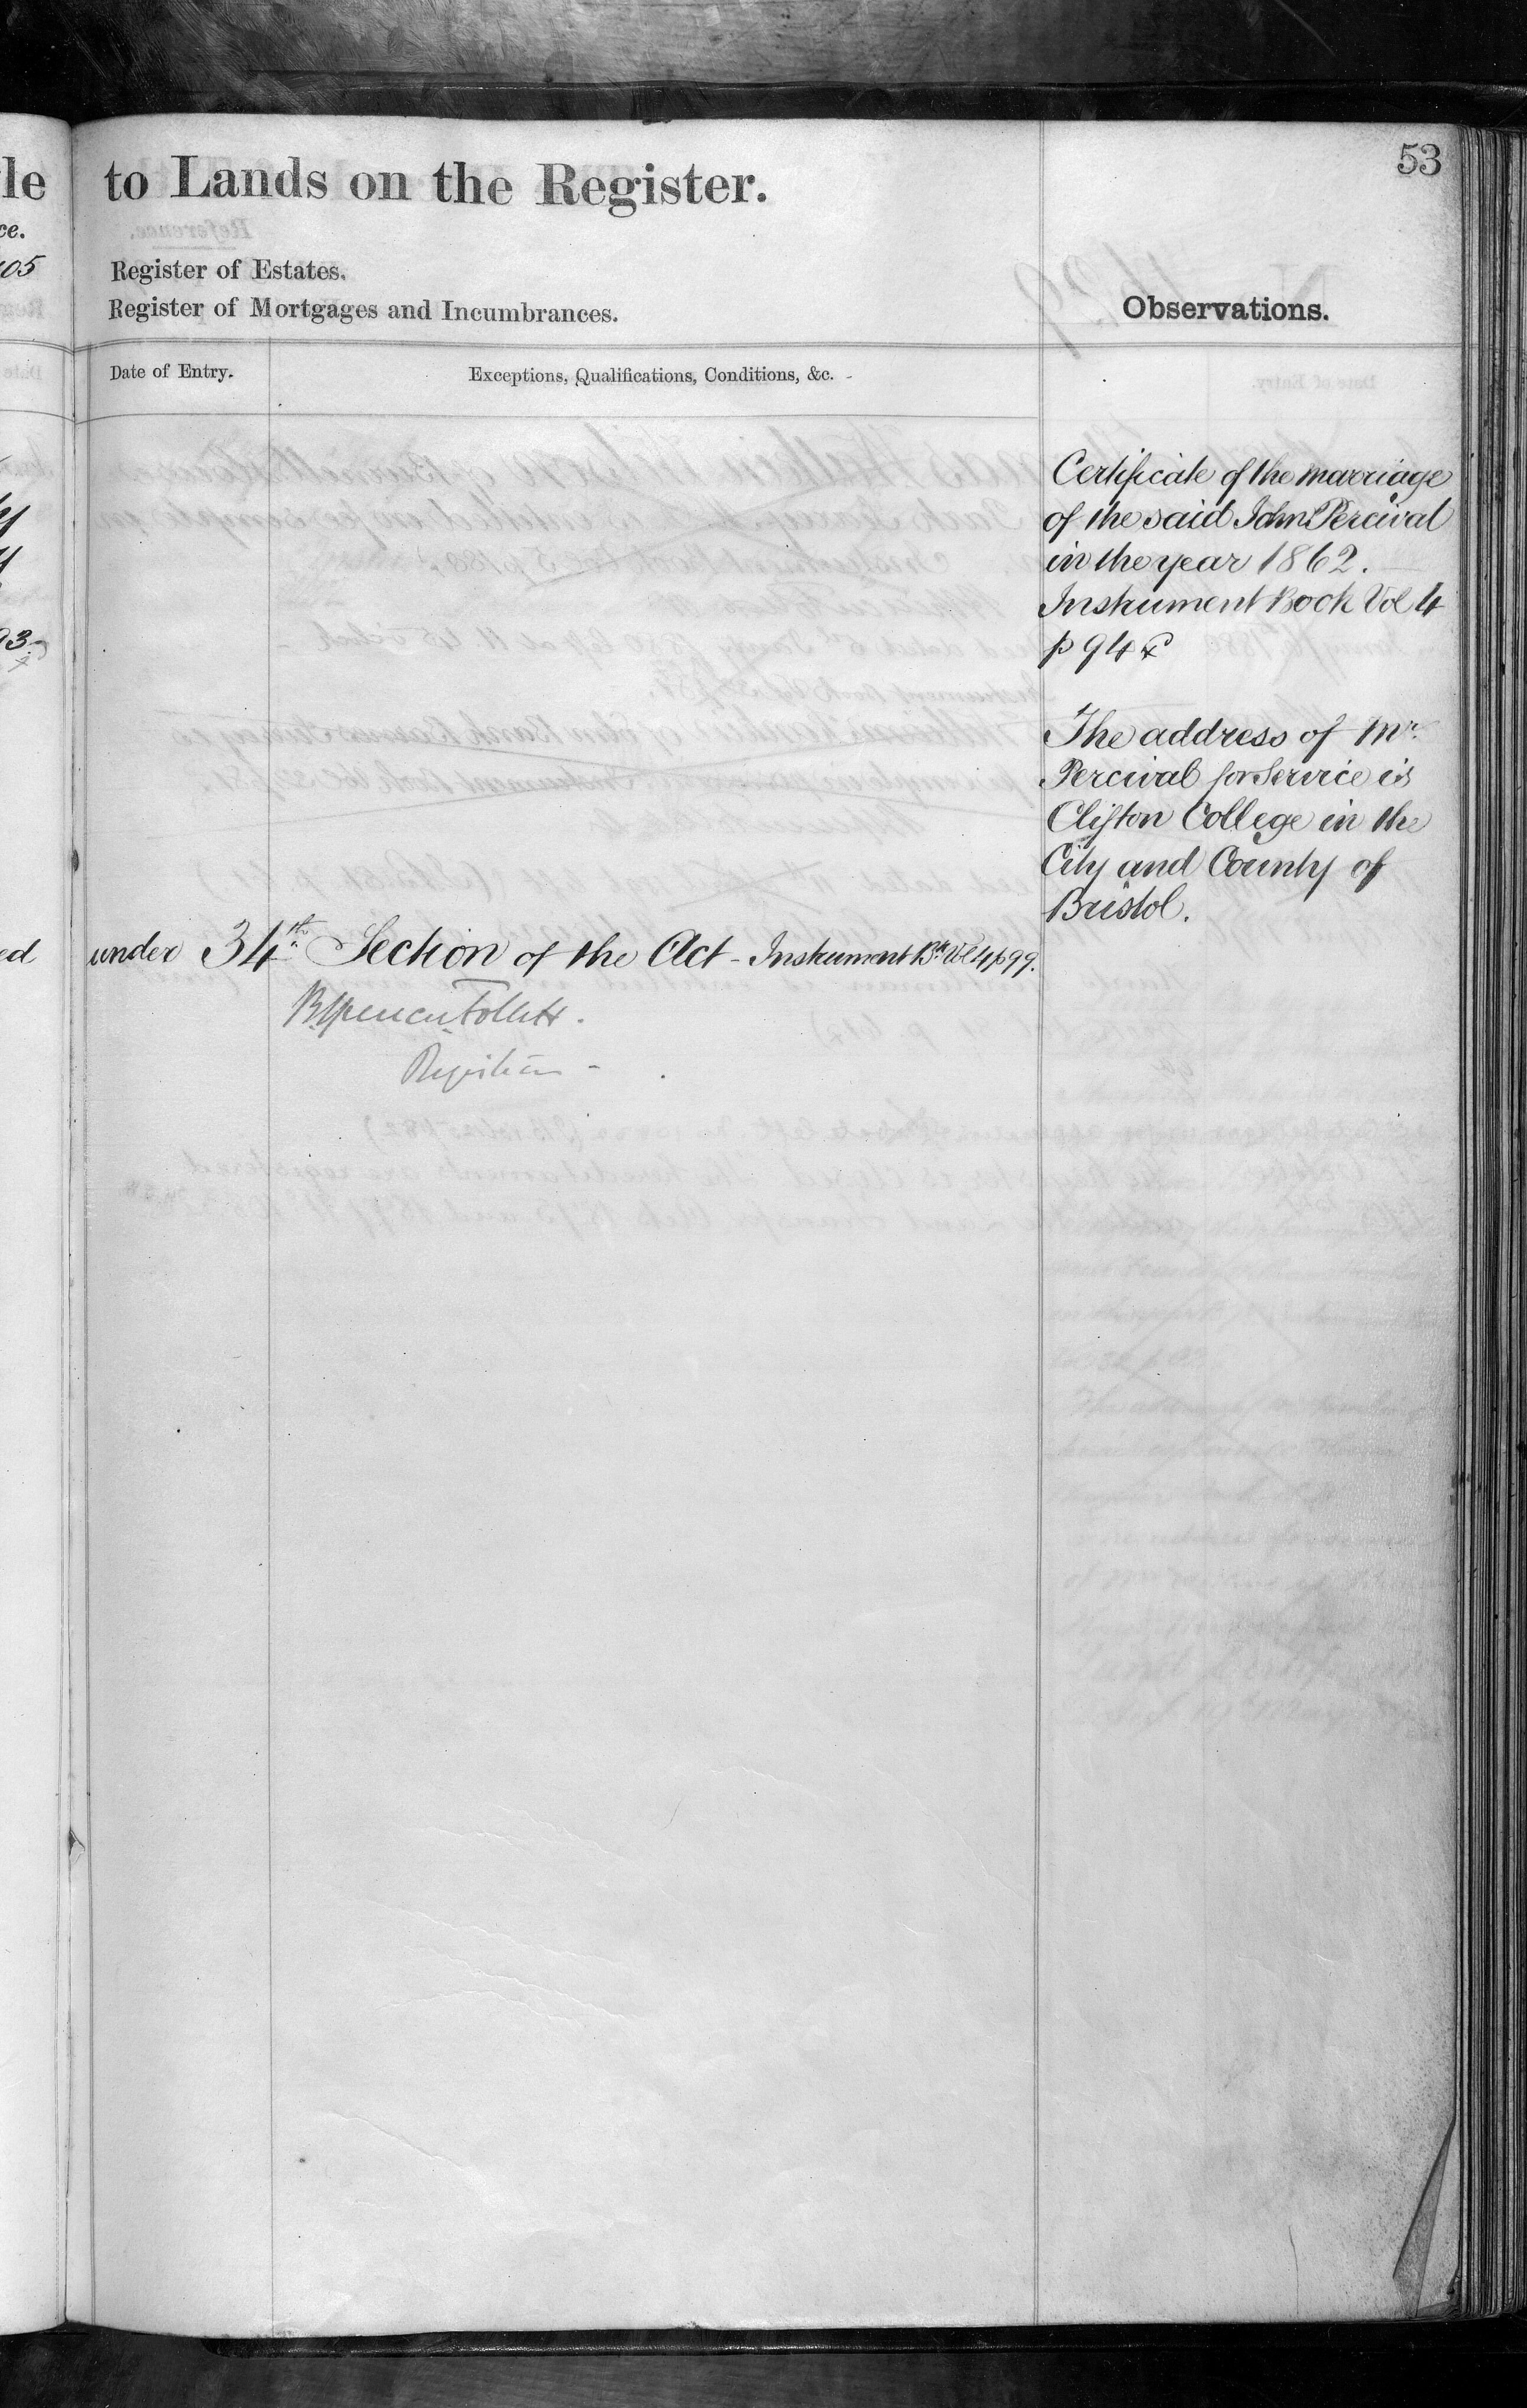 53
le to Lands on the Register.
ce.
105
Register of Estates.
Register of Mortgages and Incumbrances.
Observations.
Date of Entry.
Exceptions, Qualifications, Conditions, &c.
Certificate of the marriage
of the said John Percival
in the year 1862.
Instrument Book Vol 4
p 94
The address of Mr.
Percival for Service is
Clifton College in the
City and County of
Bristol.
ed under 34th Section of the Act - Instrument Bk Vol 4 p 99.
B Spencer Follett.
Registrar -